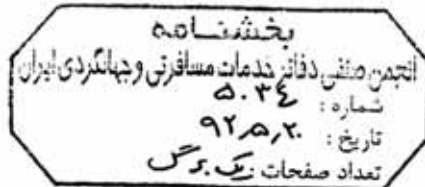 بخشنامه
انجمن صنفی دفاتر خدمات مسافرتی و جهانگردی ایران
شماره : ۵۰۳۴
تاریخ : ۹۲٫۵٫۲۰
تعداد صفحات : یک برگ